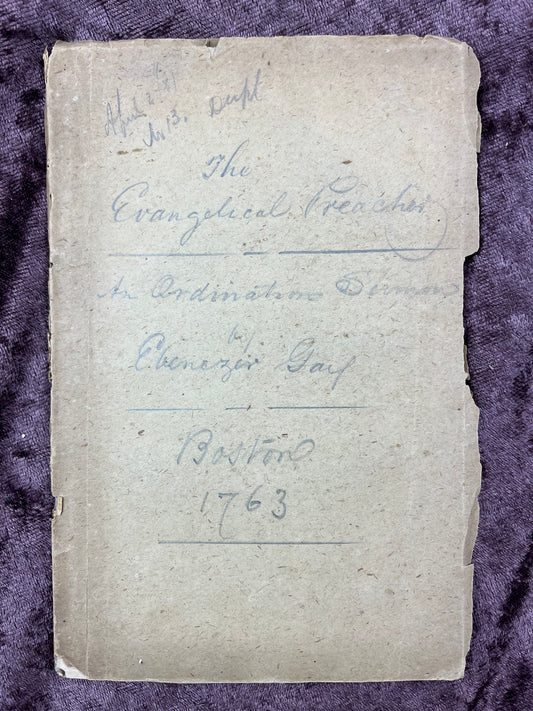 Dupl
The
Evangelical Preacher
An Ordination Sermon
by
Ebenezer Gay
Boston
1763